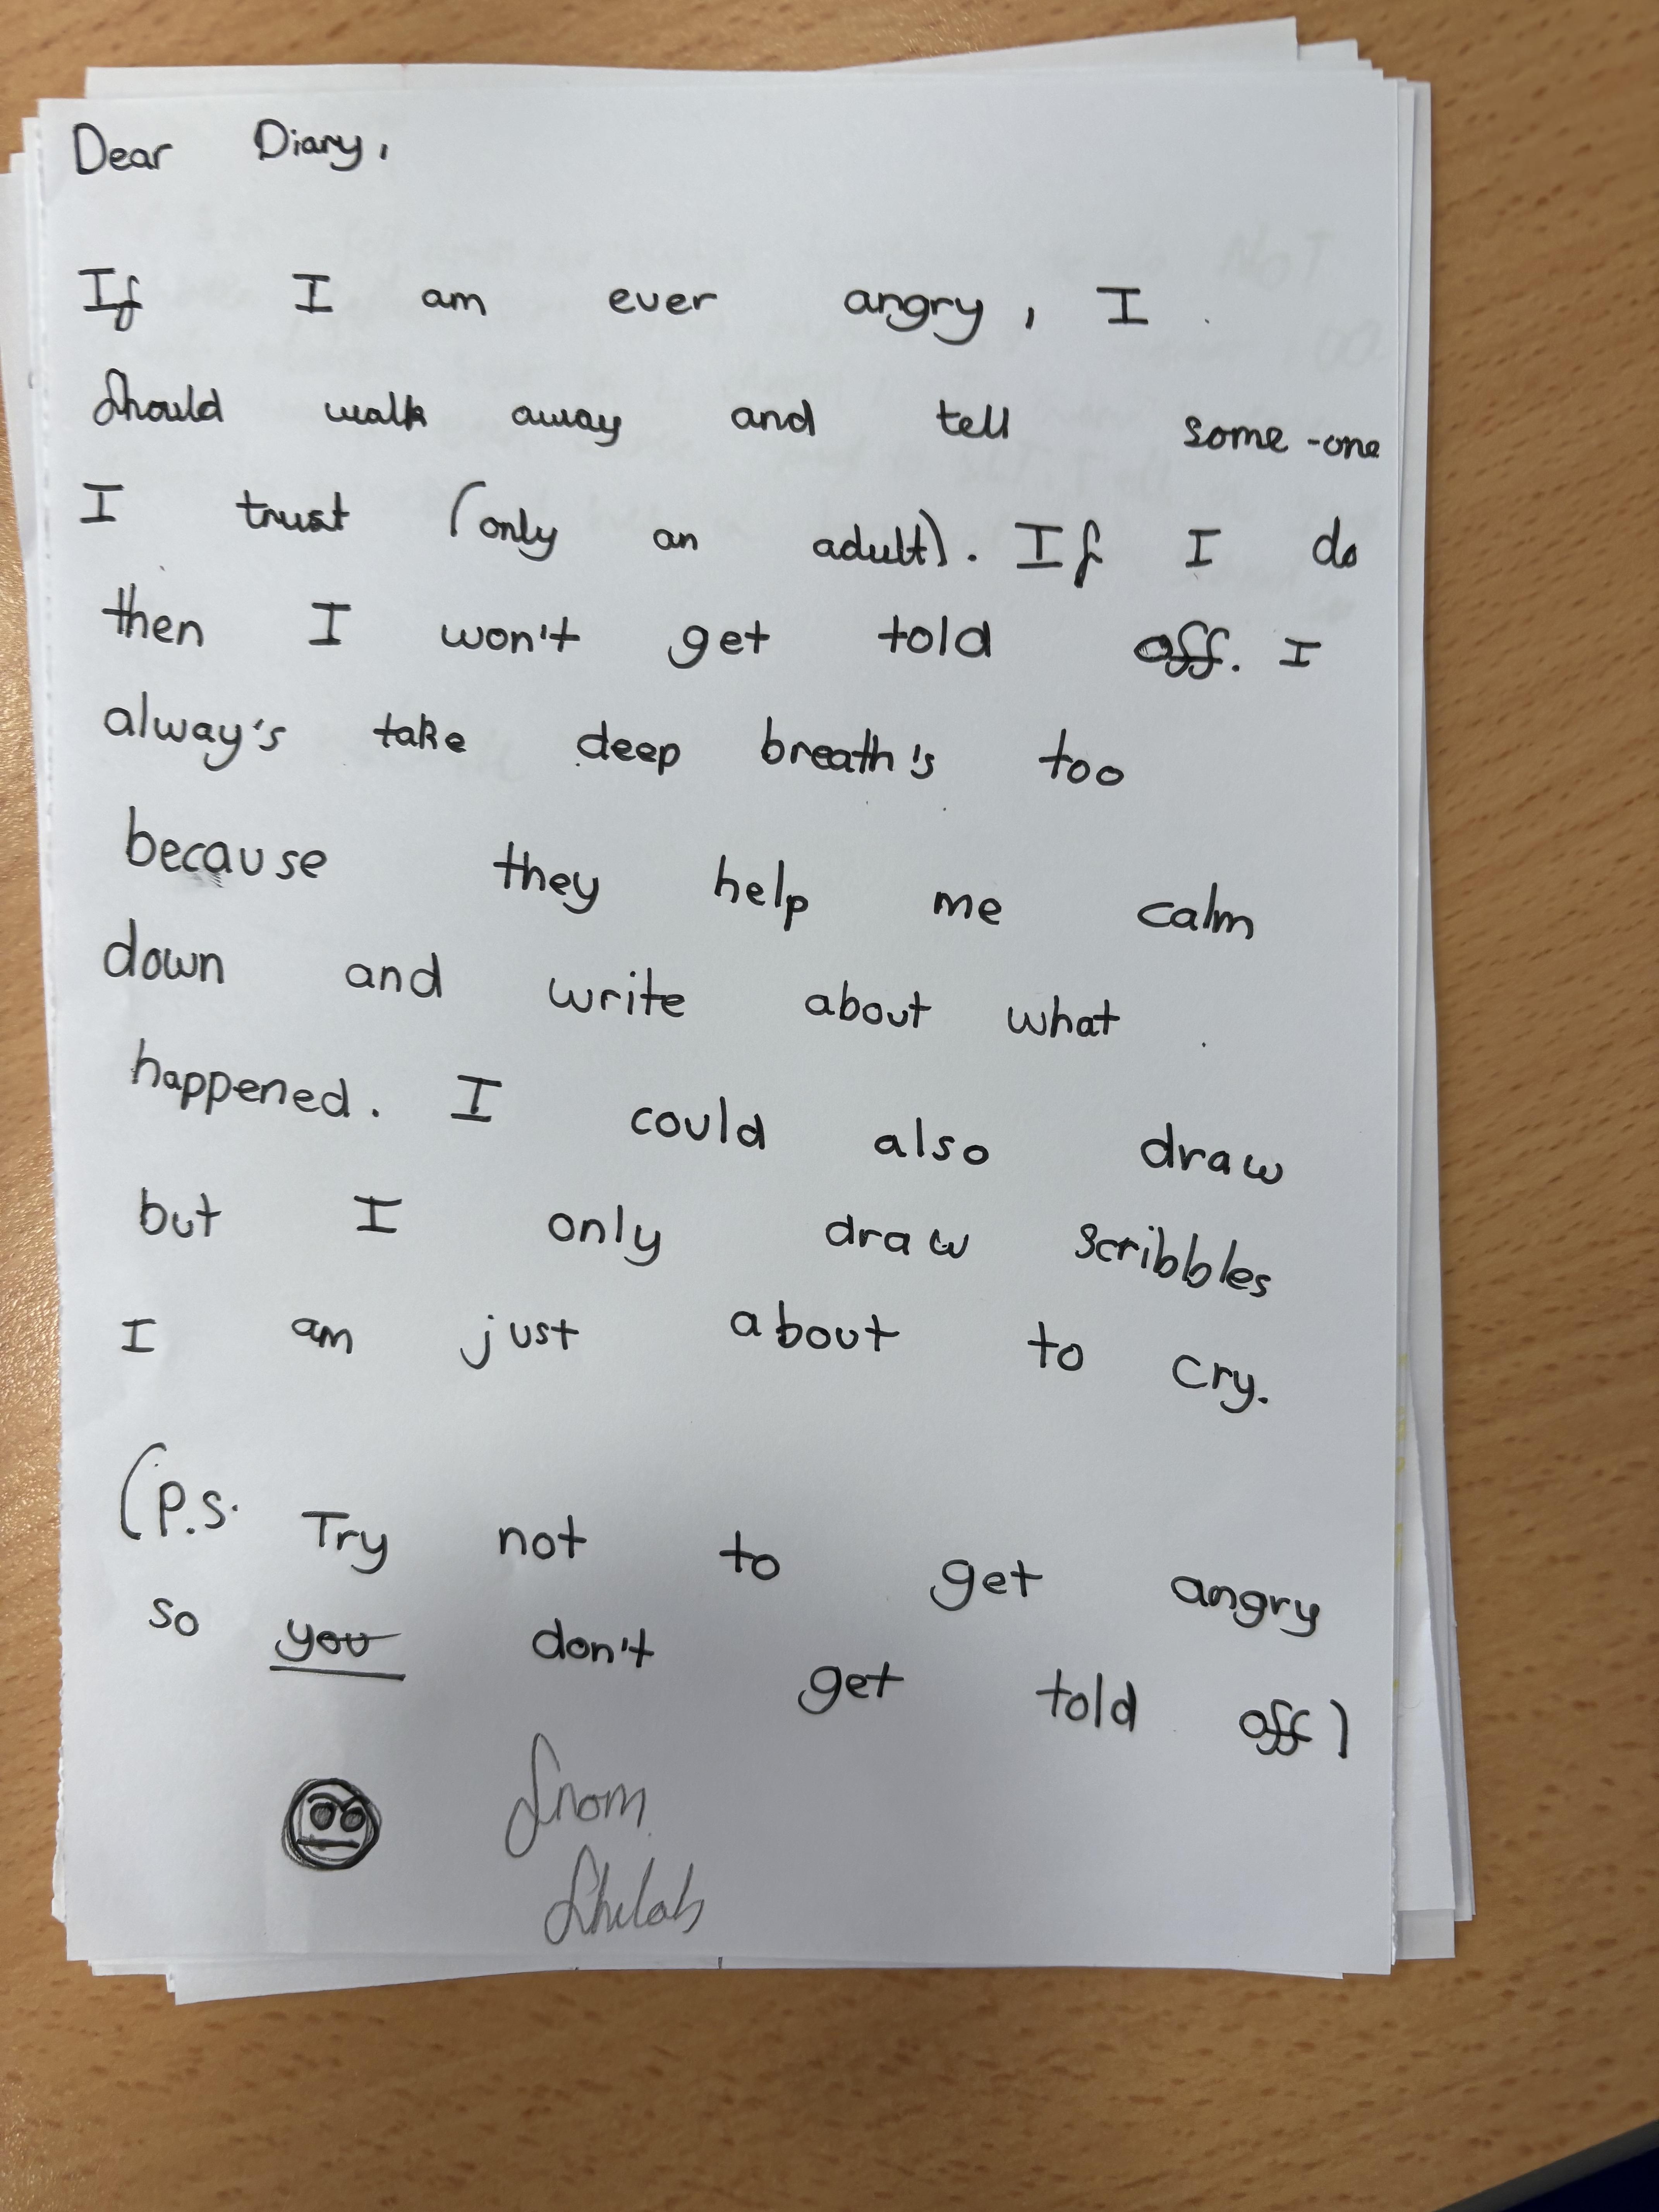 Dear Diary,
If I am ever angry, I
should walk away and tell some-one
I trust (only an adult). If I do
then I won't get told off. I
alway's take deep breath's too
because they help me calm
down and write about what
happened. I could also draw
but I only draw scribbles
I am just about to cry.
(P.S. Try not to get angry
so you don't get told off)
from